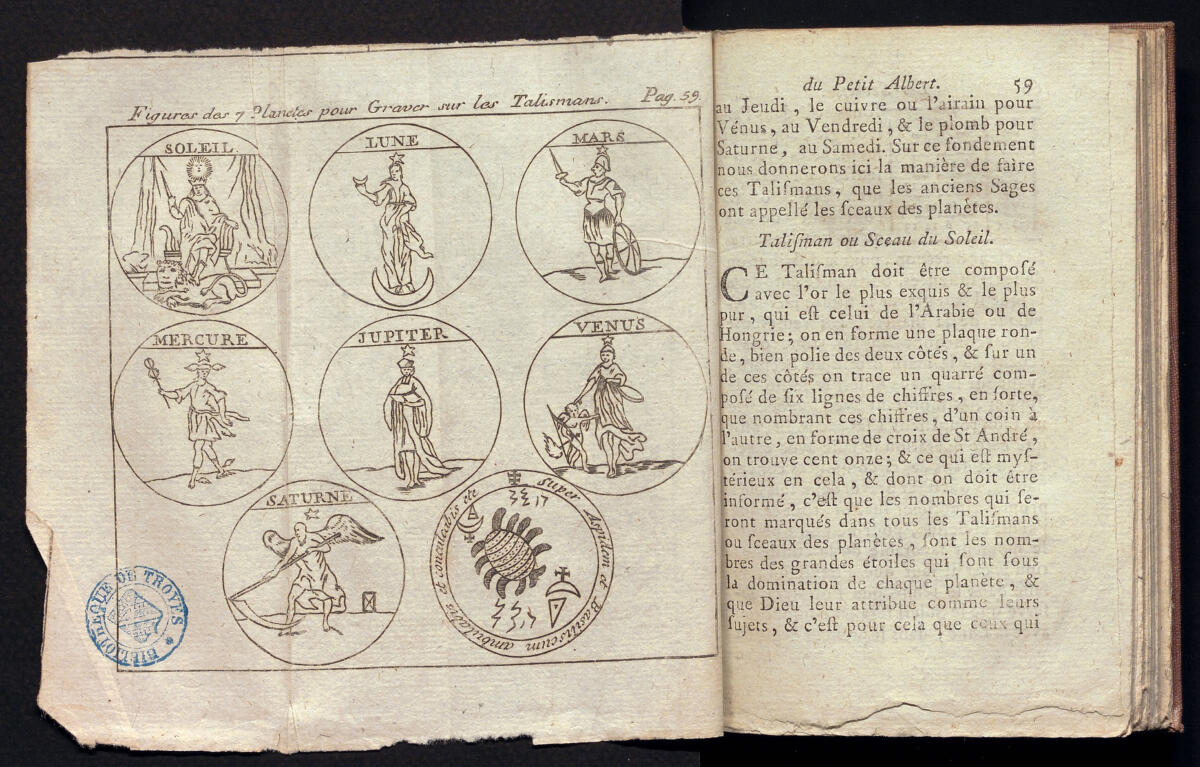 Figures des 7 Planetes pour Graver sur les Talismans. Pag. 59.
SOLEIL
LUNE
MARS
MERCURE
JUPITER
VENUS
SATURNE
super Aspidem et Basiliscum ambulabis et conculcabis
BIBLIOTHEQUE DE TROYES
du Petit Albert. 59
au Jeudi, le cuivre ou l'airain pour
Vénus, au Vendredi, & le plomb pour
Saturne, au Samedi. Sur ce fondement
nous donnerons ici la manière de faire
ces Taliſmans, que les anciens Sages
ont appellé les ſceaux des planètes.
Taliſman ou Sceau du Soleil.
CE Taliſman doit être compoſé
avec l'or le plus exquis & le plus
pur, qui eſt celui de l'Arabie ou de
Hongrie; on en forme une plaque ron-
de, bien polie des deux côtés, & ſur un
de ces côtés on trace un quarré com-
poſé de ſix lignes de chiffres, en ſorte,
que nombrant ces chiffres, d'un coin à
l'autre, en forme de croix de St André,
on trouve cent onze; & ce qui eſt myſ-
térieux en cela, & dont on doit être
informé, c'eſt que les nombres qui ſe-
ront marqués dans tous les Taliſmans
ou ſceaux des planètes, ſont les nom-
bres des grandes étoiles qui ſont ſous
la domination de chaque planète, &
que Dieu leur attribue comme leurs
ſujets, & c'eſt pour cela que ceux qui